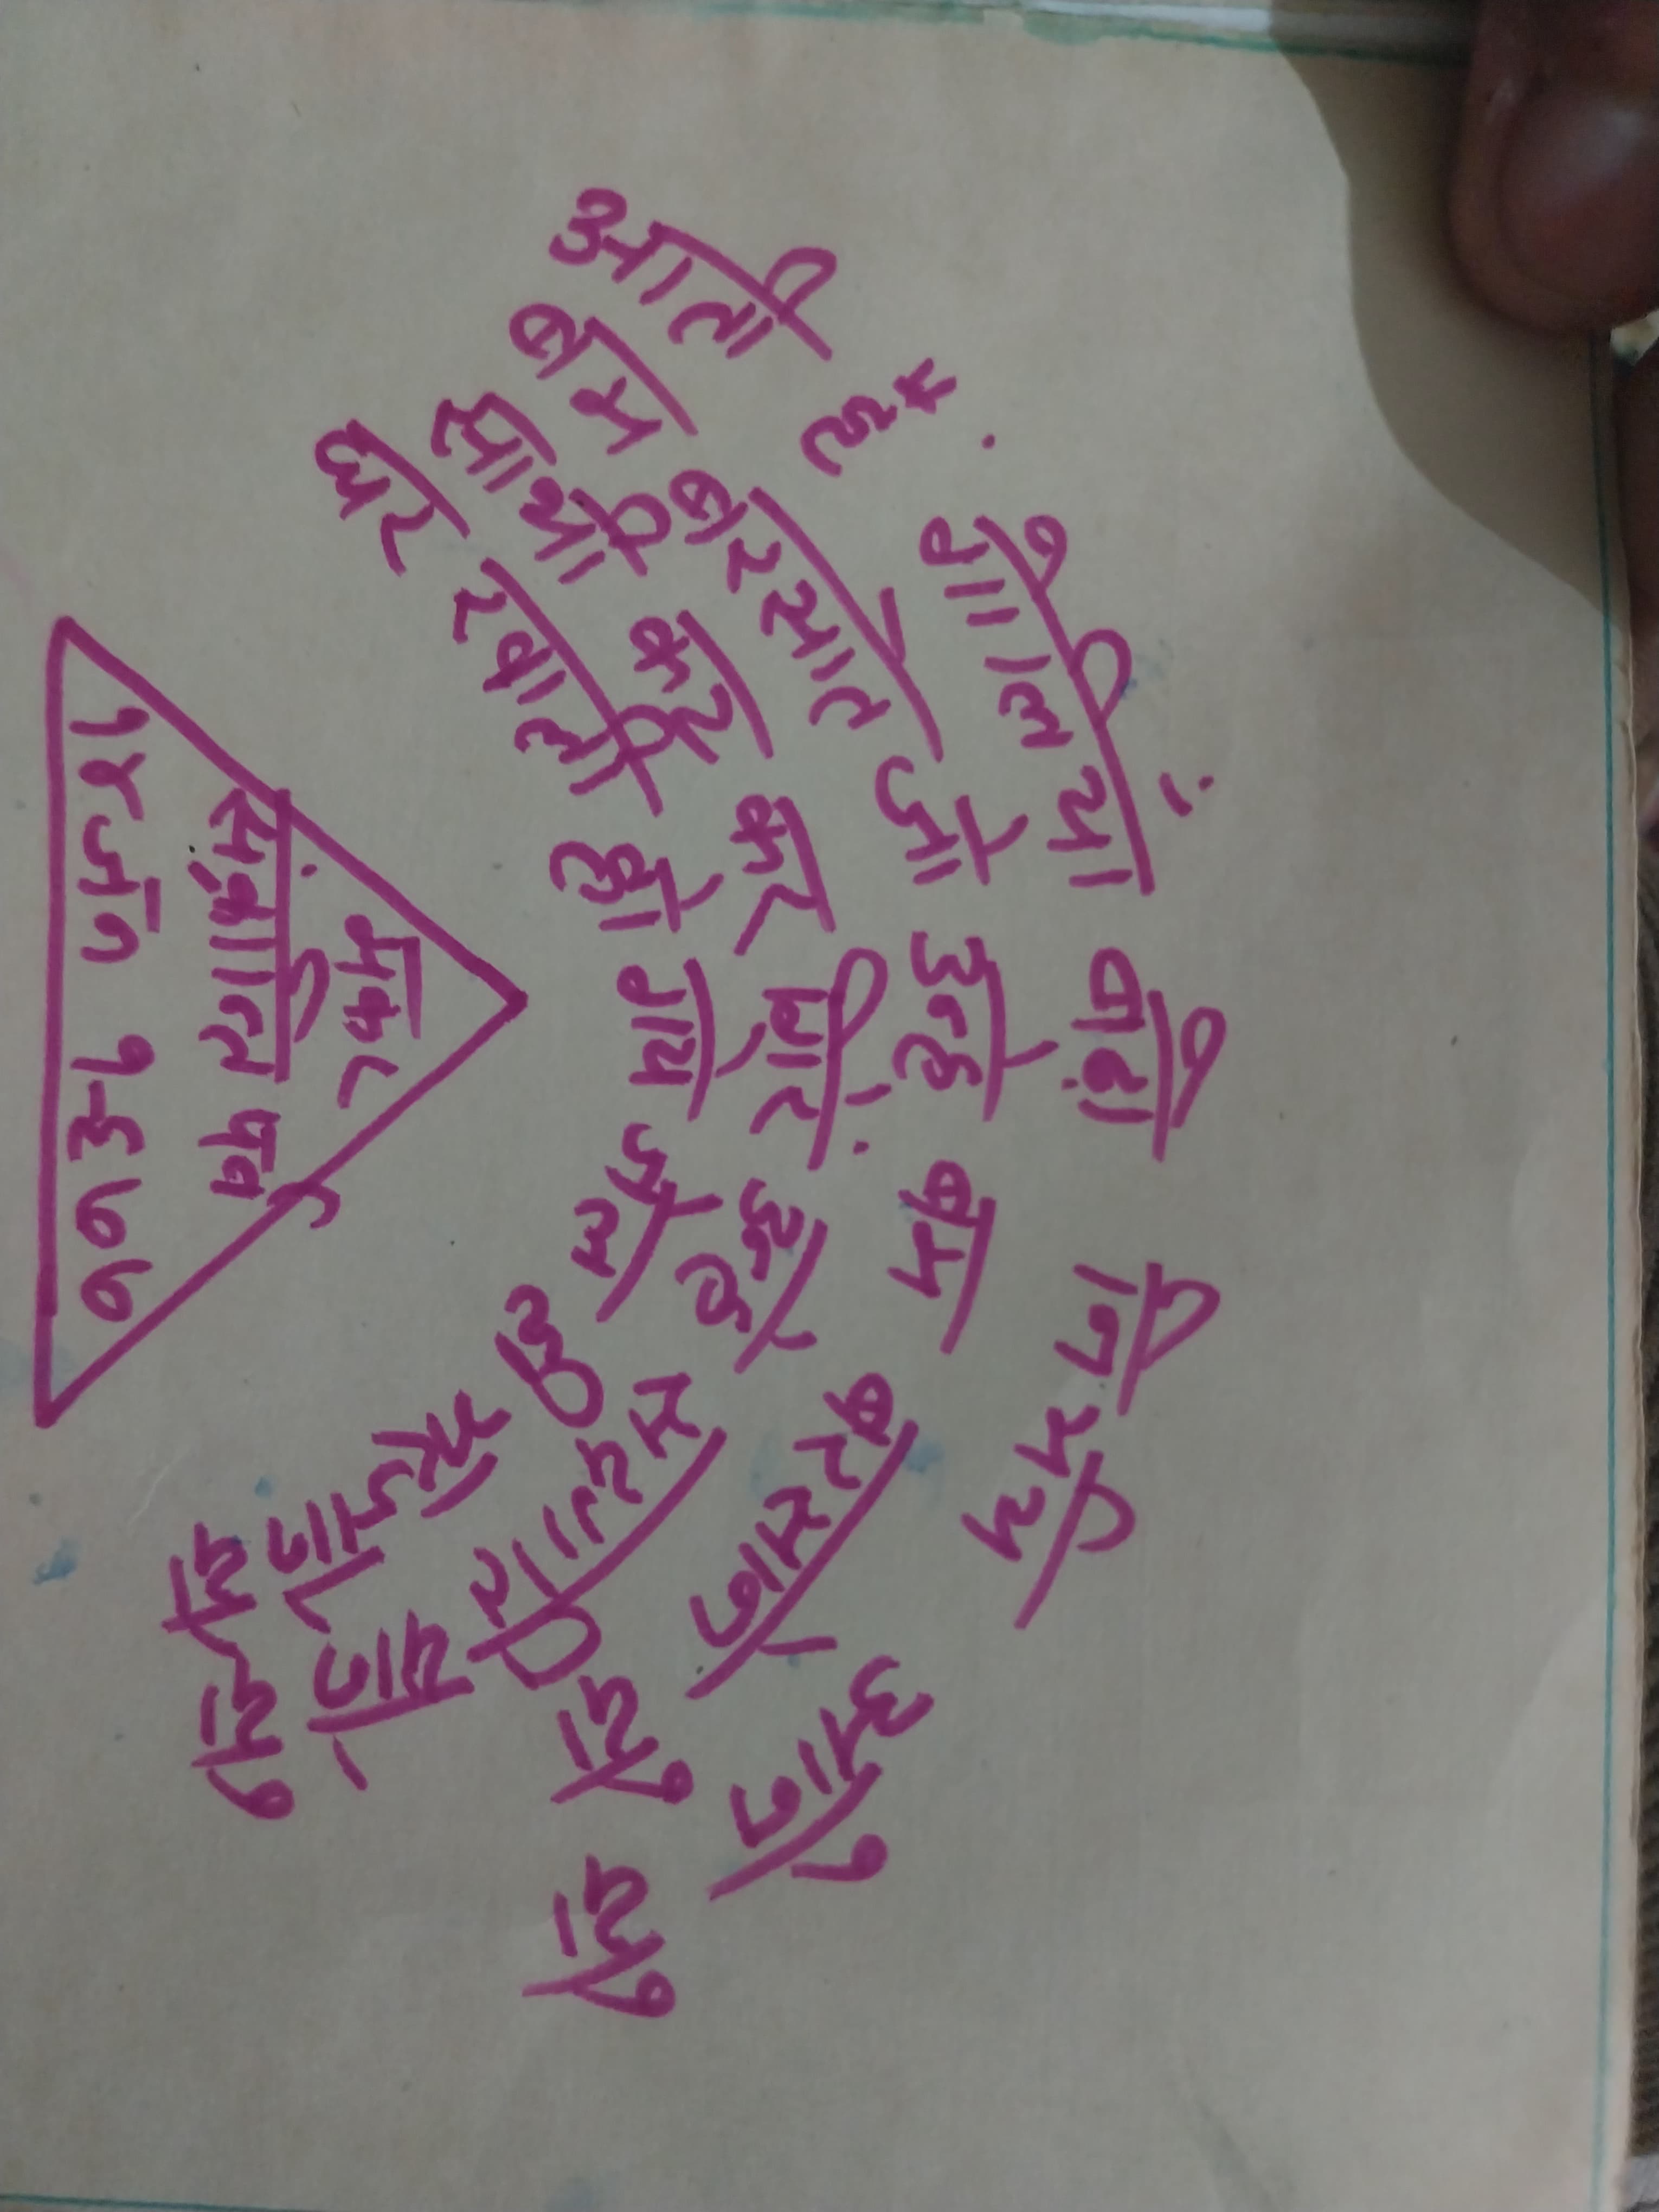 आती हैं गोलियां बढ़ो निर्भय आने दो
बम बरसात जो उन्हे बम बरसाने दो
साथी कट कर गिरें उन्हे सद्गति पाने दो
घर खाली हो गये जेल ही भर जाने दो
मकर
संक्रान्ति पर्व
१४ जन १९७७